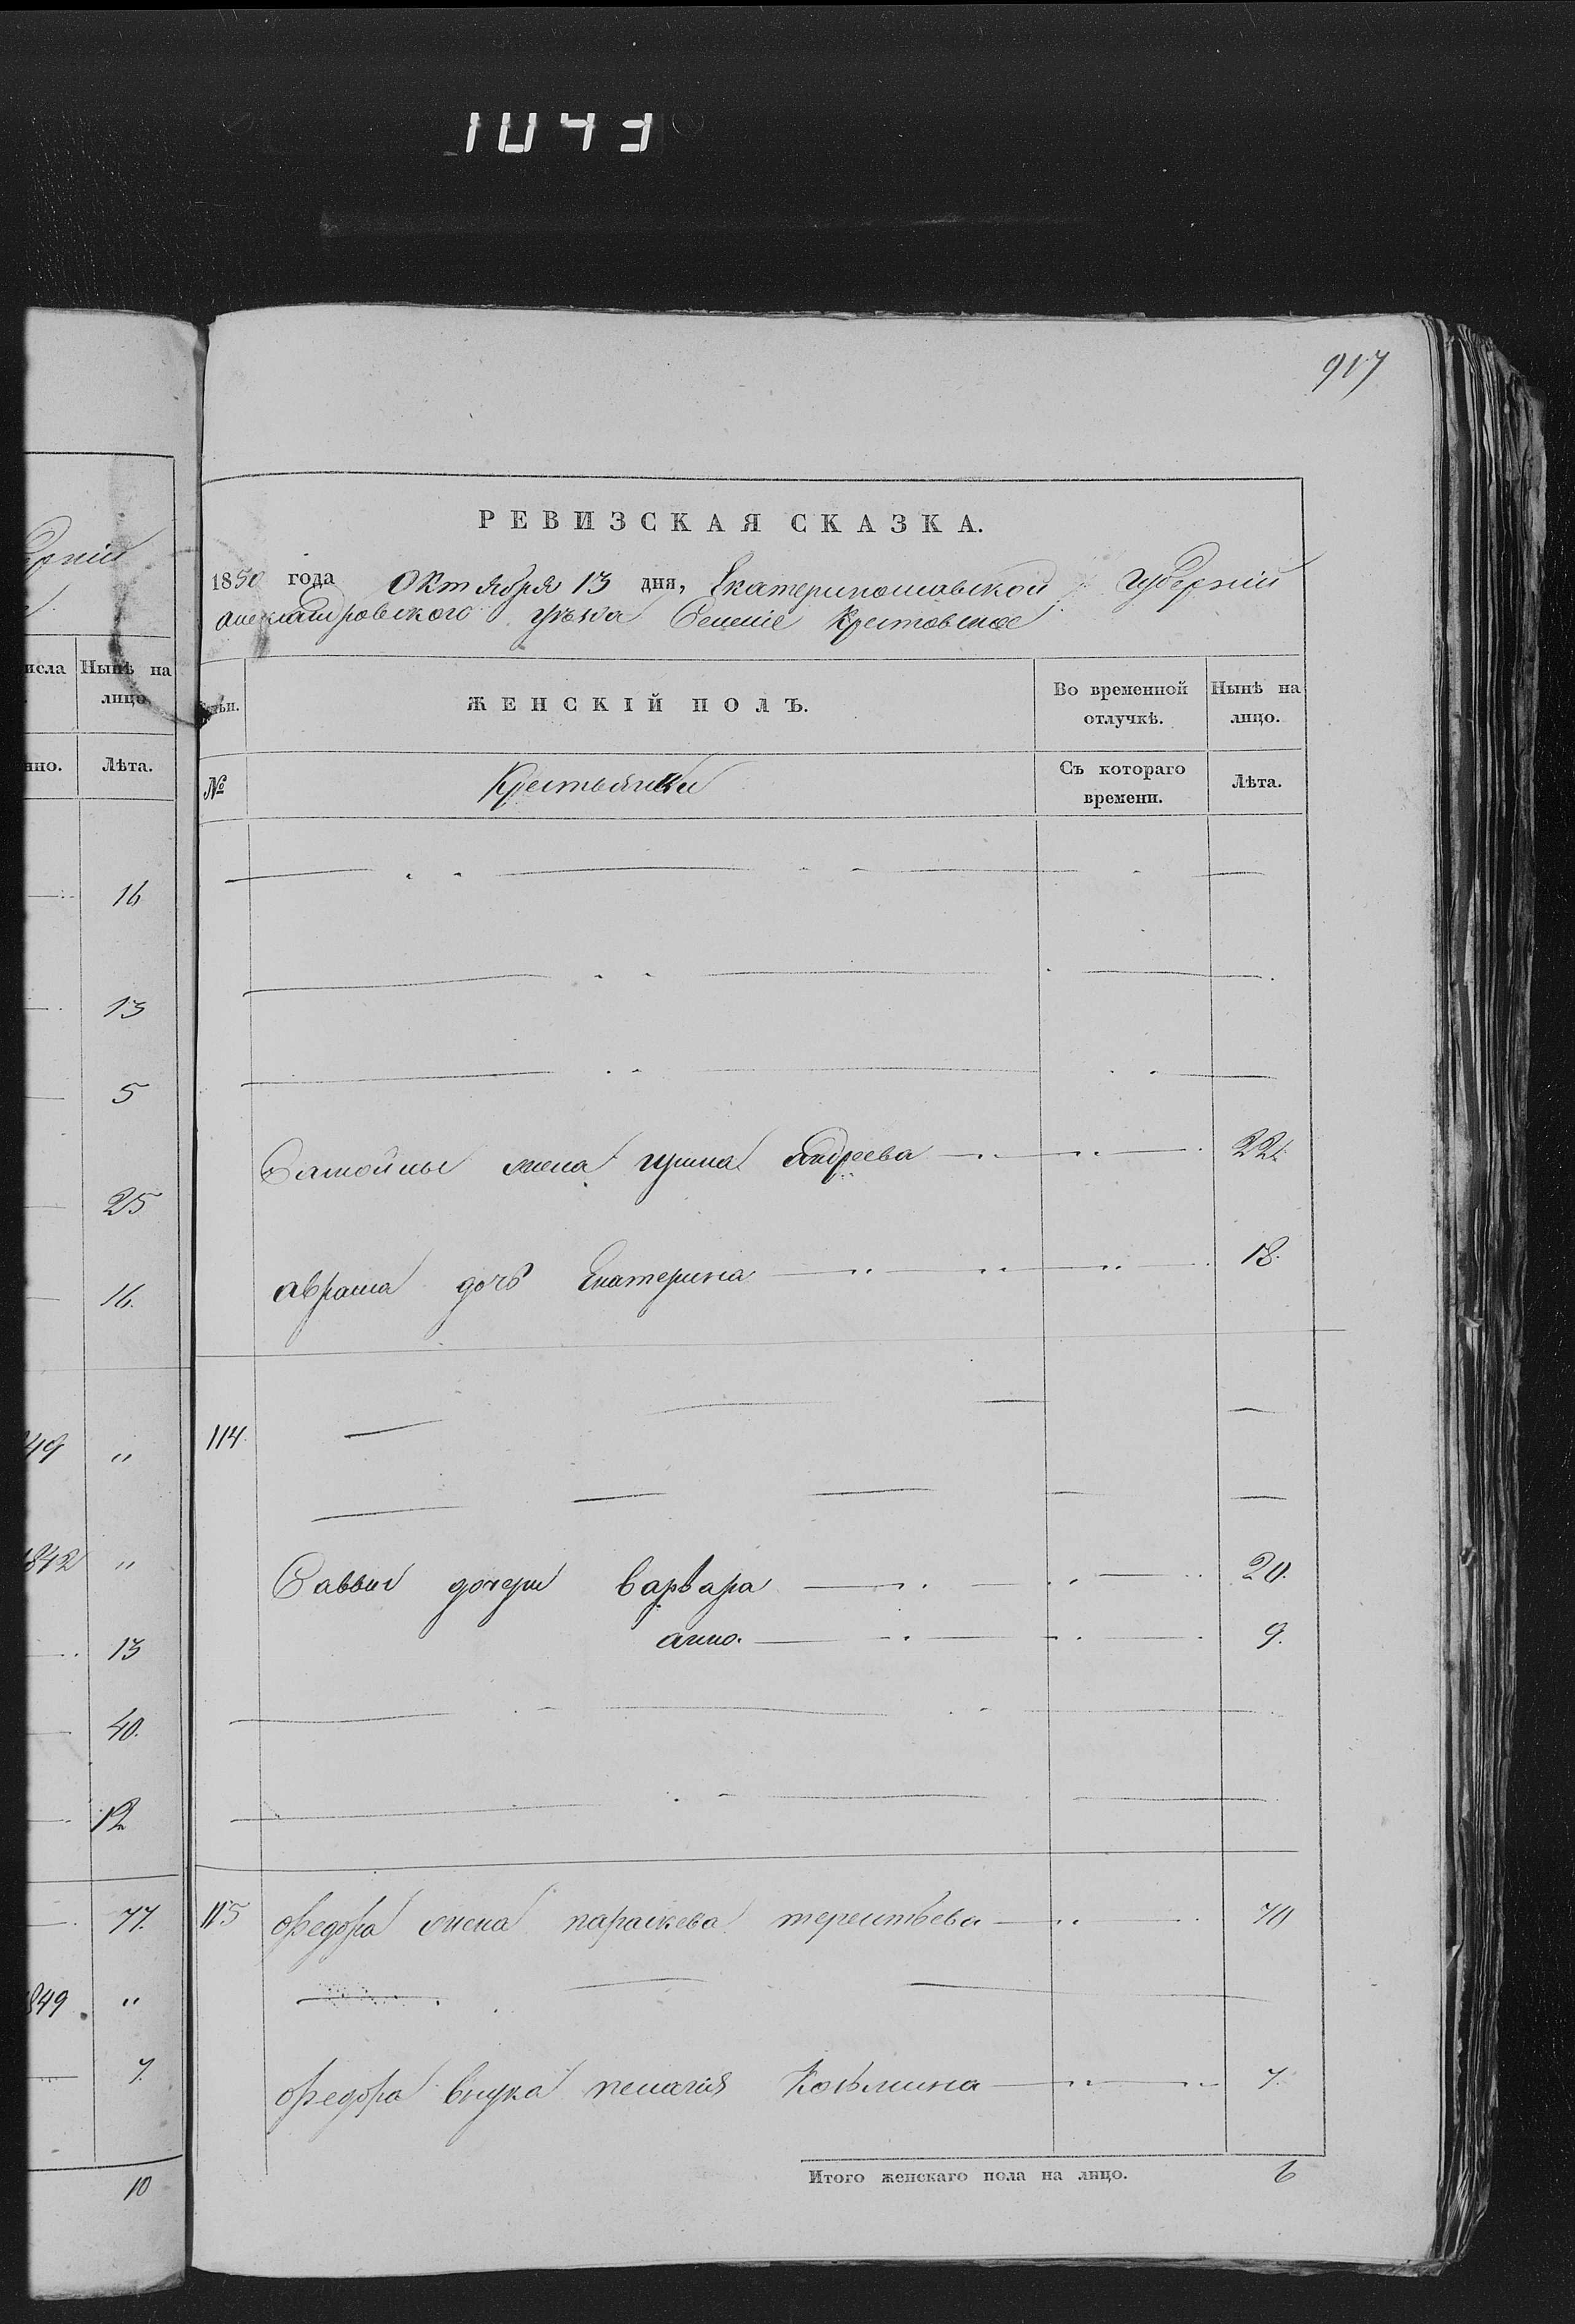 1043
917
РЕВИЗСКАЯ СКАЗКА.
1850 года Октября 13 дня, Екатеринославской Губерніи
александровского уѣзда Селеніе Крестовское
Семьи. ЖЕНСКІЙ ПОЛЪ. Во временной отлучкѣ. Нынѣ на лицо.
№ Крестьянки Съ котораго времени. Лѣта.
Самойлы жена ирина андреева 22.
аврама дочь Екатерина 18.
114.
Саввы дочери варвара 20.
анна. 9.
115 федора жена параскева терентьева 70
федора внука пелагія Козьмина 7.
Итого женскаго пола на лицо. 6
ерніи
исла Нынѣ на лицо
нно. Лѣта.
16
13
5
25
16.
49 "
1842 "
13
40.
12
77.
849. "
7.
10